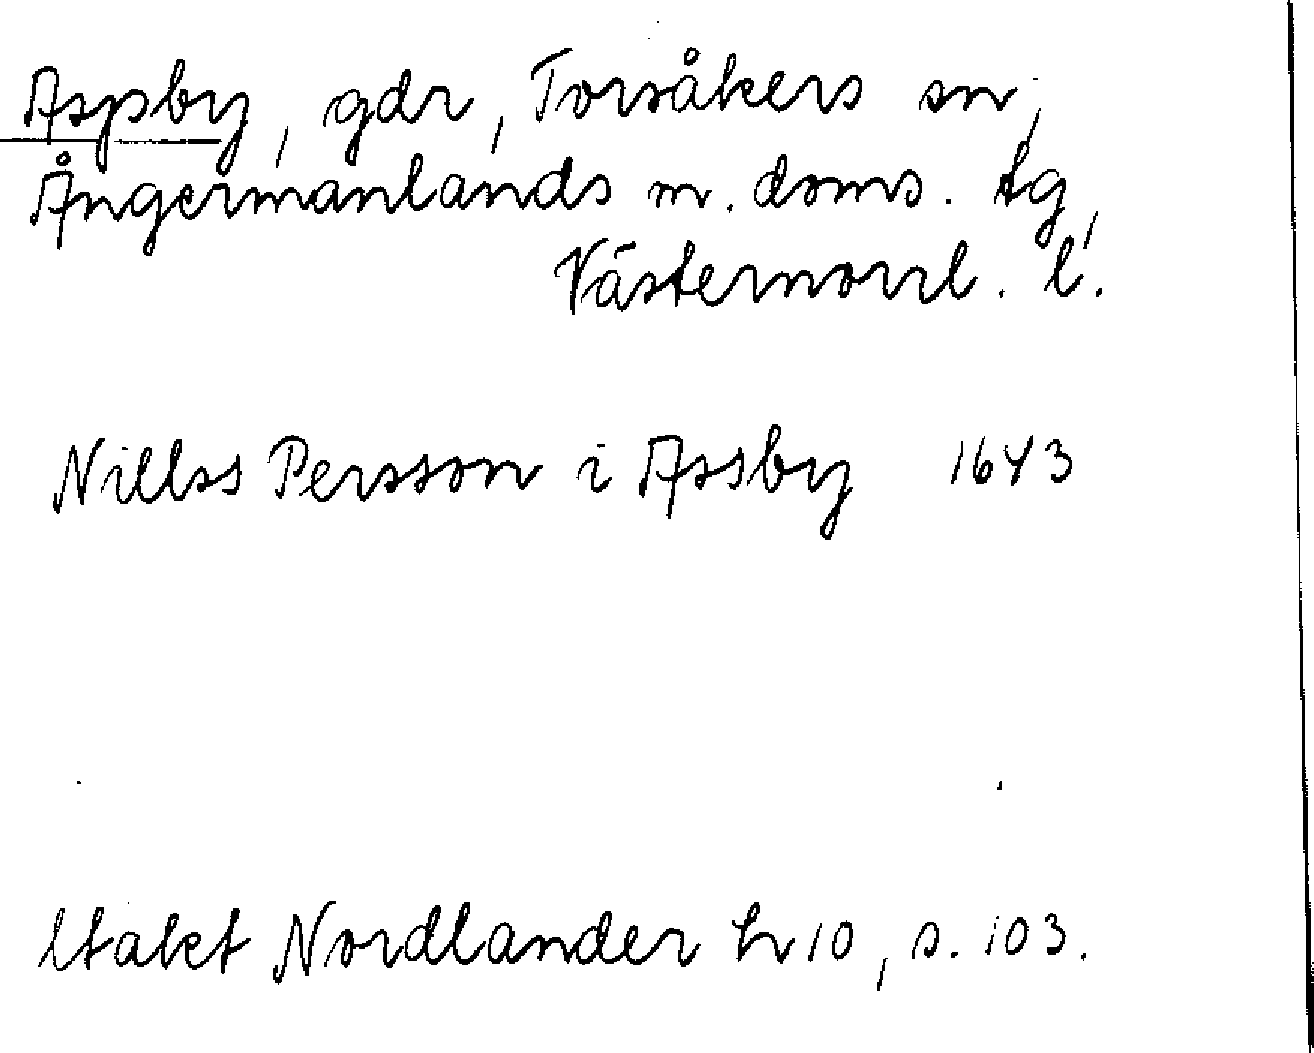 Aspby, gdr, Torsåkers sn,
Ångermanlands m. doms. tg,
Västernorrl. l.
Nillss Persson i Assby 1643
Utaket Nordlander h 10, s. 103.